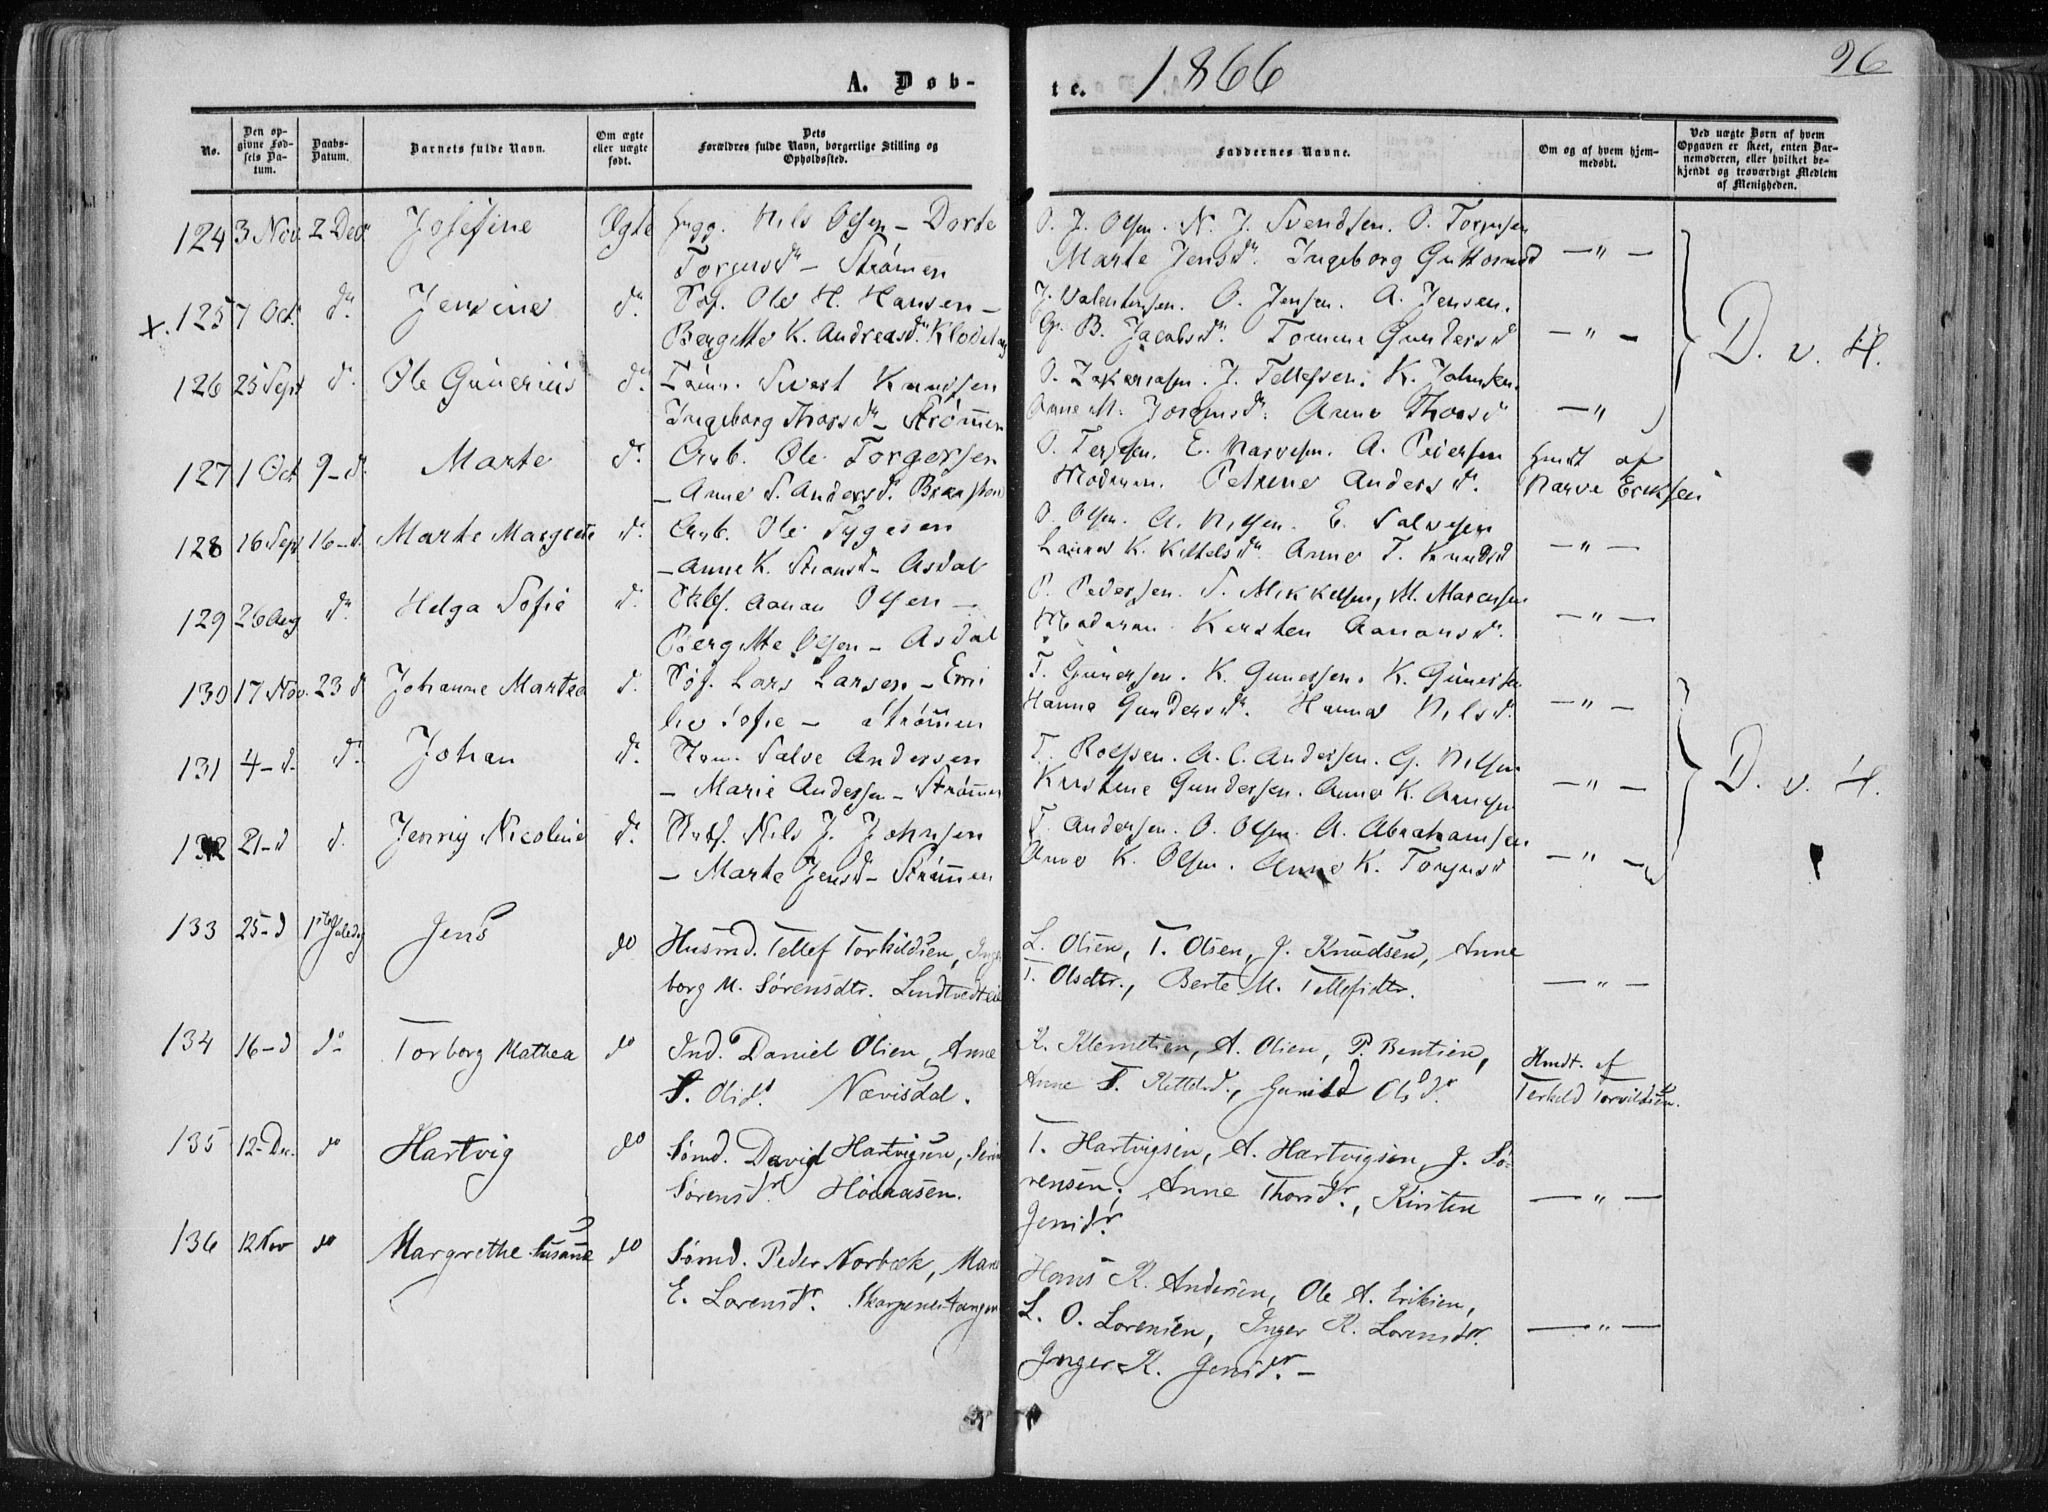 A. Døb-
te. 1866
96
No.
Den op-
givne Fød-
sels Da-
tum.
Daabs-
Datum.
Barnets fulde Navn.
Om ægte
eller uægte
født.
Dets
Forældres fulde Navn, borgerlige Stilling og
Opholdssted.
Faddernes Navne.
Om og af hvem hjem-
medøbt.
Ved uægte Børn af hvem
Opgaven er skeet, enten Bar-
nemoderen, eller hvilket be-
kjendt og troværdigt Medlem
af Menigheden.
124 3 Nov. 2 Decr Josefine Ægte Nils Olsen – Dorte
Torgersdr – Strömen
O. J. Olsen. N. J. Svendsen. O. Torjusen
Marte Jensdr. Ingeborg Guttormsd – " –
x. 125 7 Oct. do. Jensine do. Ole H. Hansen –
Bergitte K. Andreasdr. Klodeborg
J. Valentinsen. O. Jensen. A. Jensen.
B. Jacobsdr. Tomine Gundersd – " –
D. v. H.
126 25 Sept do. Ole Gunerius do. Sivert Knudsen
Ingeborg Thorsdr – Strömmen
O. Zakariasen. J. Tellefsen. K. Johnsen.
Anne M. Jorgensdr. Anne Thorsdr – "
127 1 Oct 9 – d. Marte do. Arb. Ole Torgersen
– Anne S. Andersdr.
O. Terjesen. E. Narvesen. A. Pedersen
Moderen. Petrine Andersdr.
Hmdt af
Narve Eriksen
128 16 Sept 16 – d. Marte Margrete do. Arb. Ole Tygesen
– Anne K. – Asdal
O. Olsen. A. Nilsen. E. Salvesen
K. Kittelsdr. Anne T. Knudsd – " –
129 26 Aug do. Helga Sofie do. Aanon Olsen –
Bergitte Olsen – Asdal
P. Pedersen. S. Mikkelsen, M. Marcusen
Moderen. Kirsten Aanonsdr. – " –
130 17 Nov. 23 d Johanne Martea do. Lars Larsen – Emi
lie Sofie – Strömmen
T. Gunersen. K. Gunersen. K. Gunersen
Hanne Gundersdr. Hanne Nilsdr. – " –
131 4 – d. do. Johan do. Salve Andersen
– Marie Andersen – Strömmen
T. Rolfsen. A. C. Andersen. G. Nilsen
Kirstine Gundersen. Anne K. Arnesen – " –
D. v. H.
132 21 – d d. Jenny Nicoline do. Nils J. Johnsen
– Marte Jensd – Strömmen
T. Andersen. O. Olsen. A. Abrahamsen
Anne K. Olsen. Anne K. Torjusd – " –
133 25 – d 1ste Juledag Jens do Husmd. Tellef Torkildsen, Inge
borg M. Sørensdtr.
L. Olsen, T. Olsen, J. Knudsen, Anne
T. Olsdtr., Berte M. Tellefsdtr. – " –
134 16 – d do Torborg Mathea do Ind. Daniel Olsen, Anne
S. Olsdr. Nævisdal.
K. Klemetsen, A. Olsen, P. Bentsen,
Anne S. Kittelsd., Gunild Olsdr.
Hmdt. af
Terkild Torkildsen.
135 12 – Dec. do Hartvig do Sømd. David Hartvigsen,
Sørensdr.
T. Hartvigsen, A. Hartvigsen, J. Sø-
rensen, Anne Thorsdr., Kirsten
Jensdr. – " –
136 12 Nov do Margrethe Susanne do Sømd. Peder Norbæk, Maren
E. Lorensdr. Skarpenestangen
Hans K. Andersen, Ole A. Eriksen,
L. O. Lorensen, Inger K. Lorensdr. – " –
Inger K. Jensdr. –